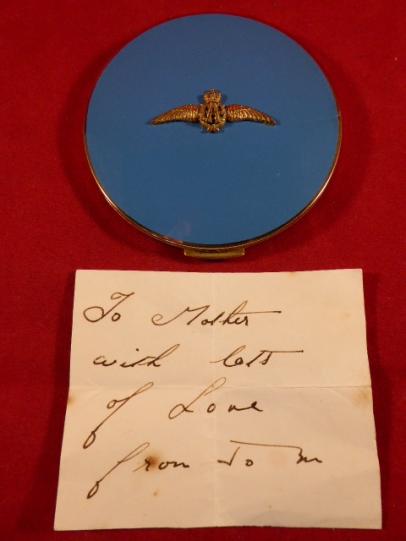 To Mother
with lots
of Love
from Tom